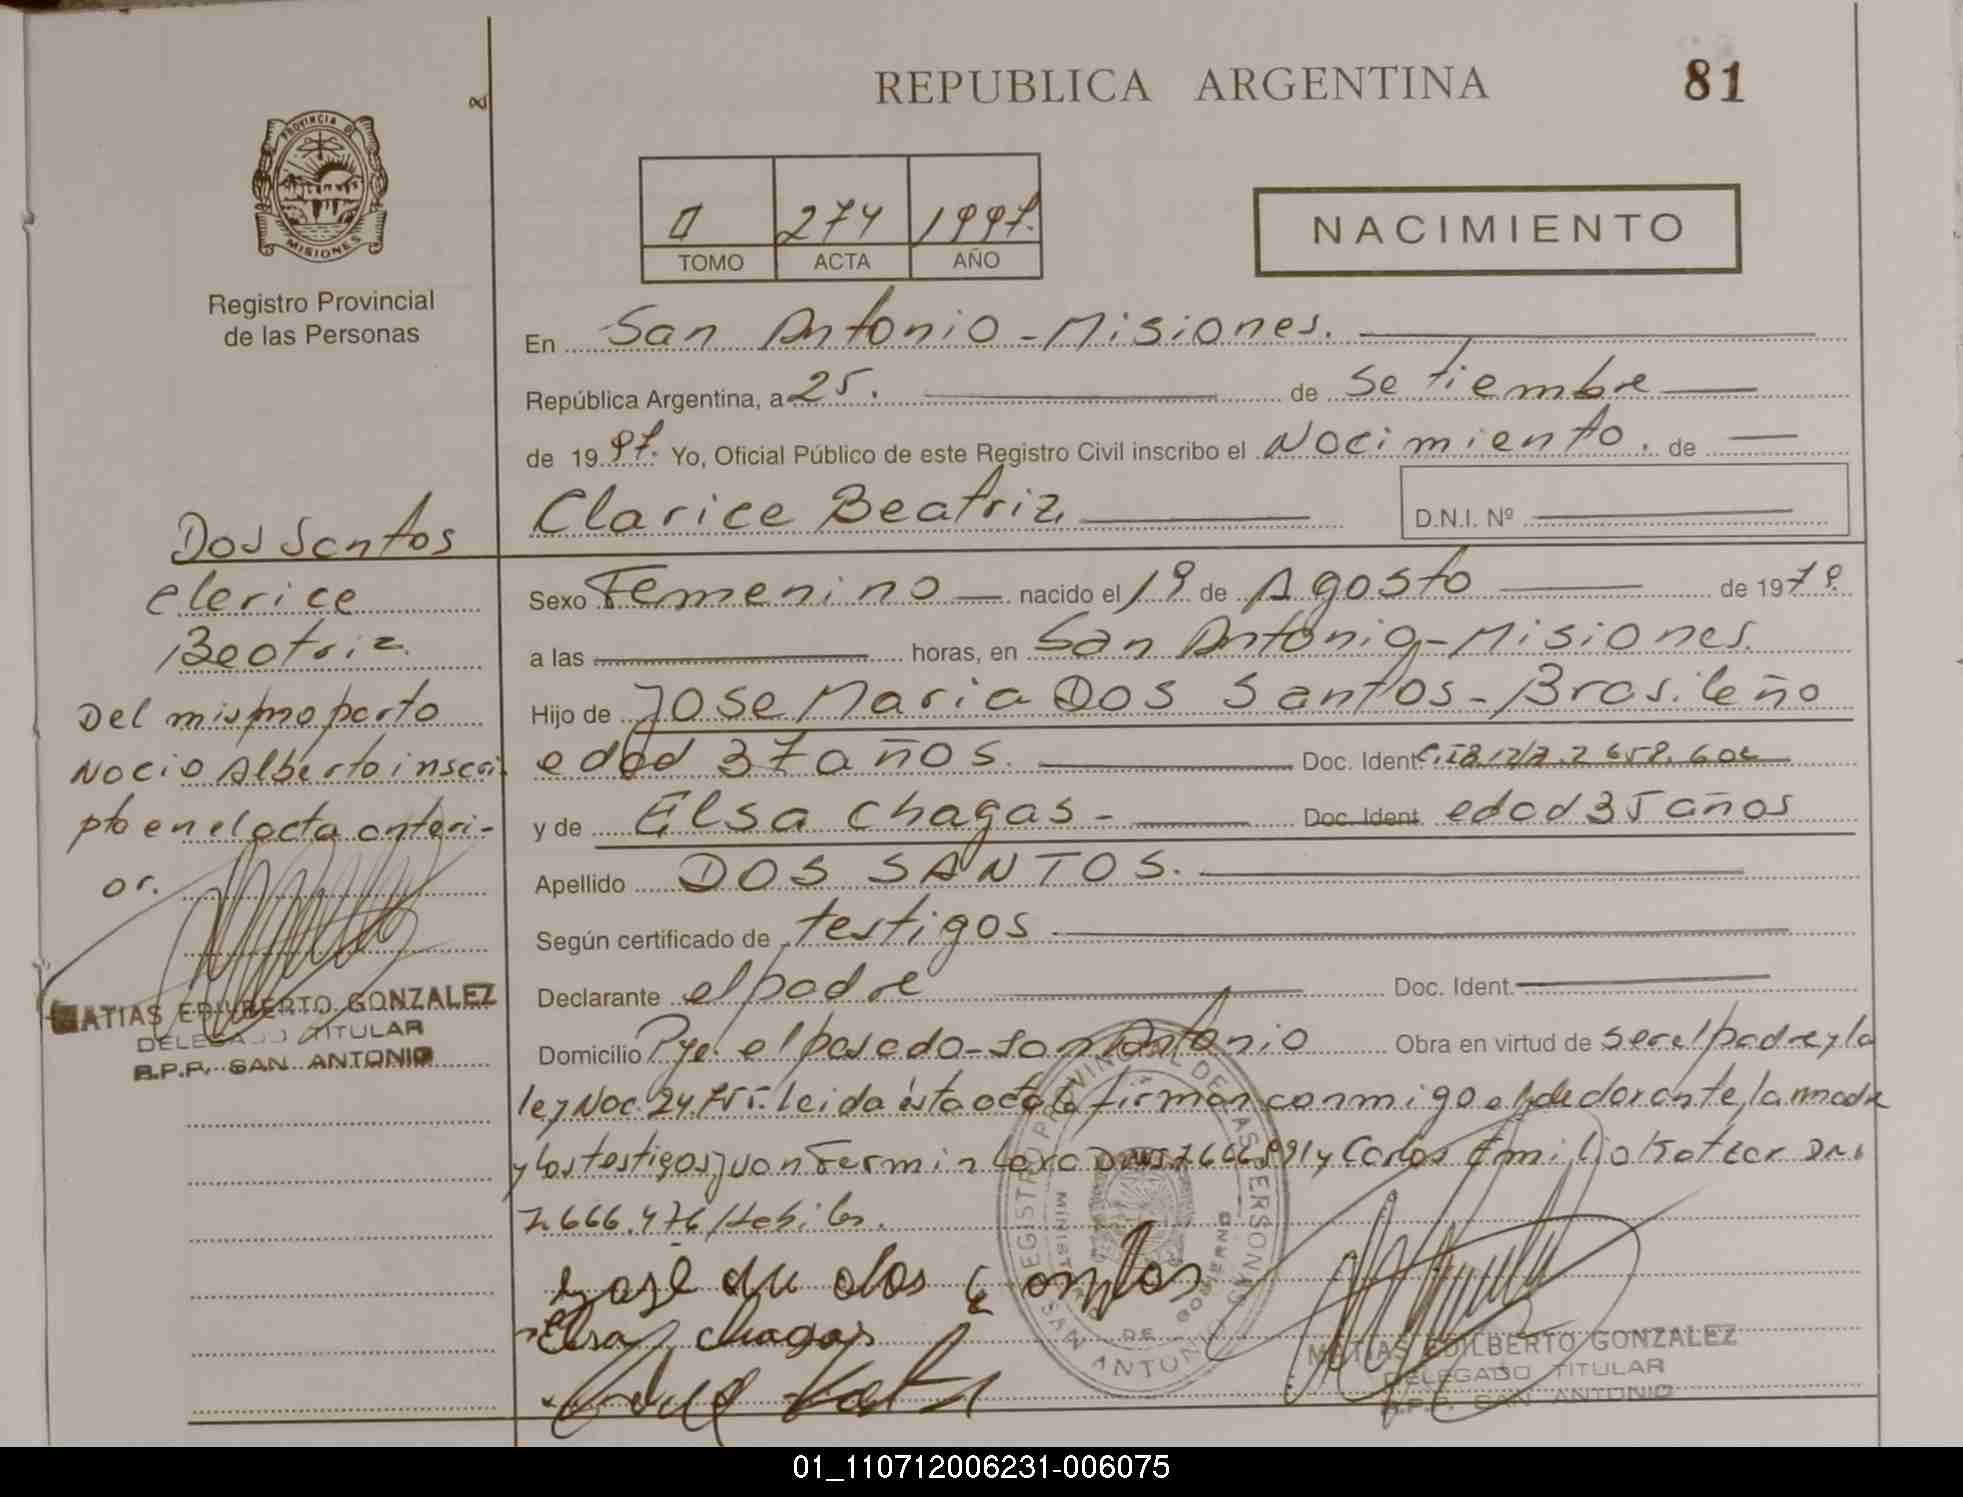 REPUBLICA ARGENTINA
81
PROVINCIA DE
MISIONES
Registro Provincial
de las Personas
II 274 1997.
TOMO ACTA AÑO
NACIMIENTO
En San Antonio - Misiones.
República Argentina, a 25. de Setiembre
de 1997. Yo, Oficial Público de este Registro Civil inscribo el Nacimiento. de
Clarice Beatriz
D.N.I. Nº
Dos Santos
Clarice
Beatriz
Del mismo parto
Nacio Alberto inscri
pto en el acta anteri-
or.
MATIAS EDILBERTO GONZALEZ
DELEGADO TITULAR
R.P.P. SAN ANTONIO
Sexo Femenino nacido el 19 de Agosto de 1979.
a las horas, en San Antonio - Misiones.
Hijo de Jose Maria Dos Santos - Brasileño
edad 37 años. Doc. Ident.
y de Elsa Chagas - Doc. Ident. edad 35 años
Apellido DOS SANTOS.
Según certificado de testigos
Declarante el padre Doc. Ident.
Domicilio Pje. el posado - San Antonio Obra en virtud de ser el padre y la
ley Nac. 24.755. leida ésta acta la firman conmigo el declarante, la madre
y los testigos Juan Fermin Lara y Carlos Emilio DNI
7.666.476 Habiles.
José du dos Santos
Elsa chagas
REGISTRO PROVINCIAL DE LAS PERSONAS
MINISTERIO DE GOBIERNO
SAN ANTONIO
MATIAS EDILBERTO GONZALEZ
DELEGADO TITULAR
R.P.P. SAN ANTONIO
01_110712006231-006075